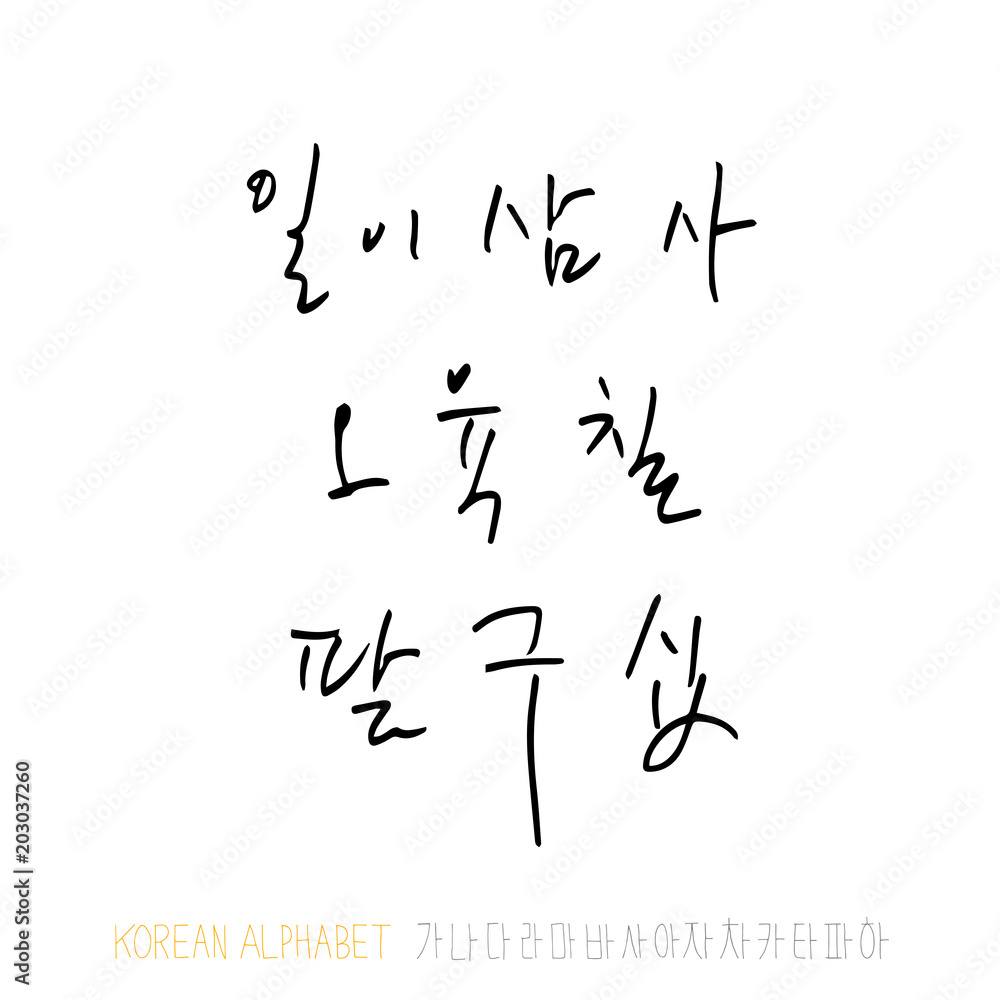 일 이 삼 사
오 육 칠
팔 구 십
KOREAN ALPHABET 가나다라마바사아자차카타파하
Adobe Stock | #203037260